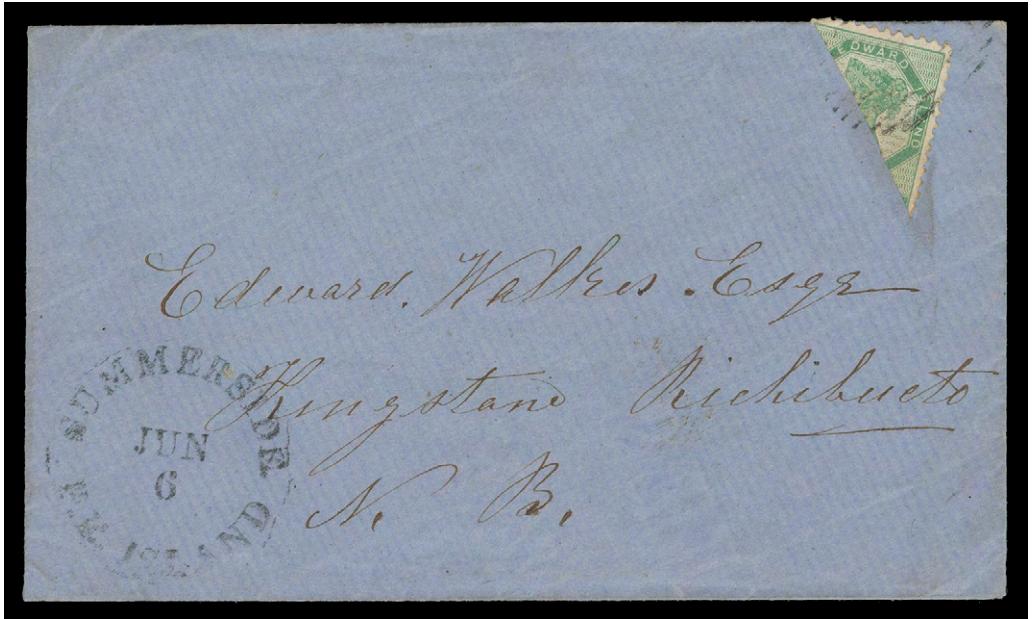 EDWARD ISLAND
Edward. Walker. Esqr
Kingstand Richibucto
N. B.
SUMMERSIDE
JUN
6
ISLAND